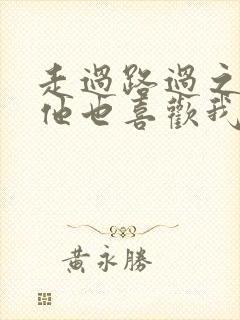 走過路過之
他也喜歡我
黃永勝